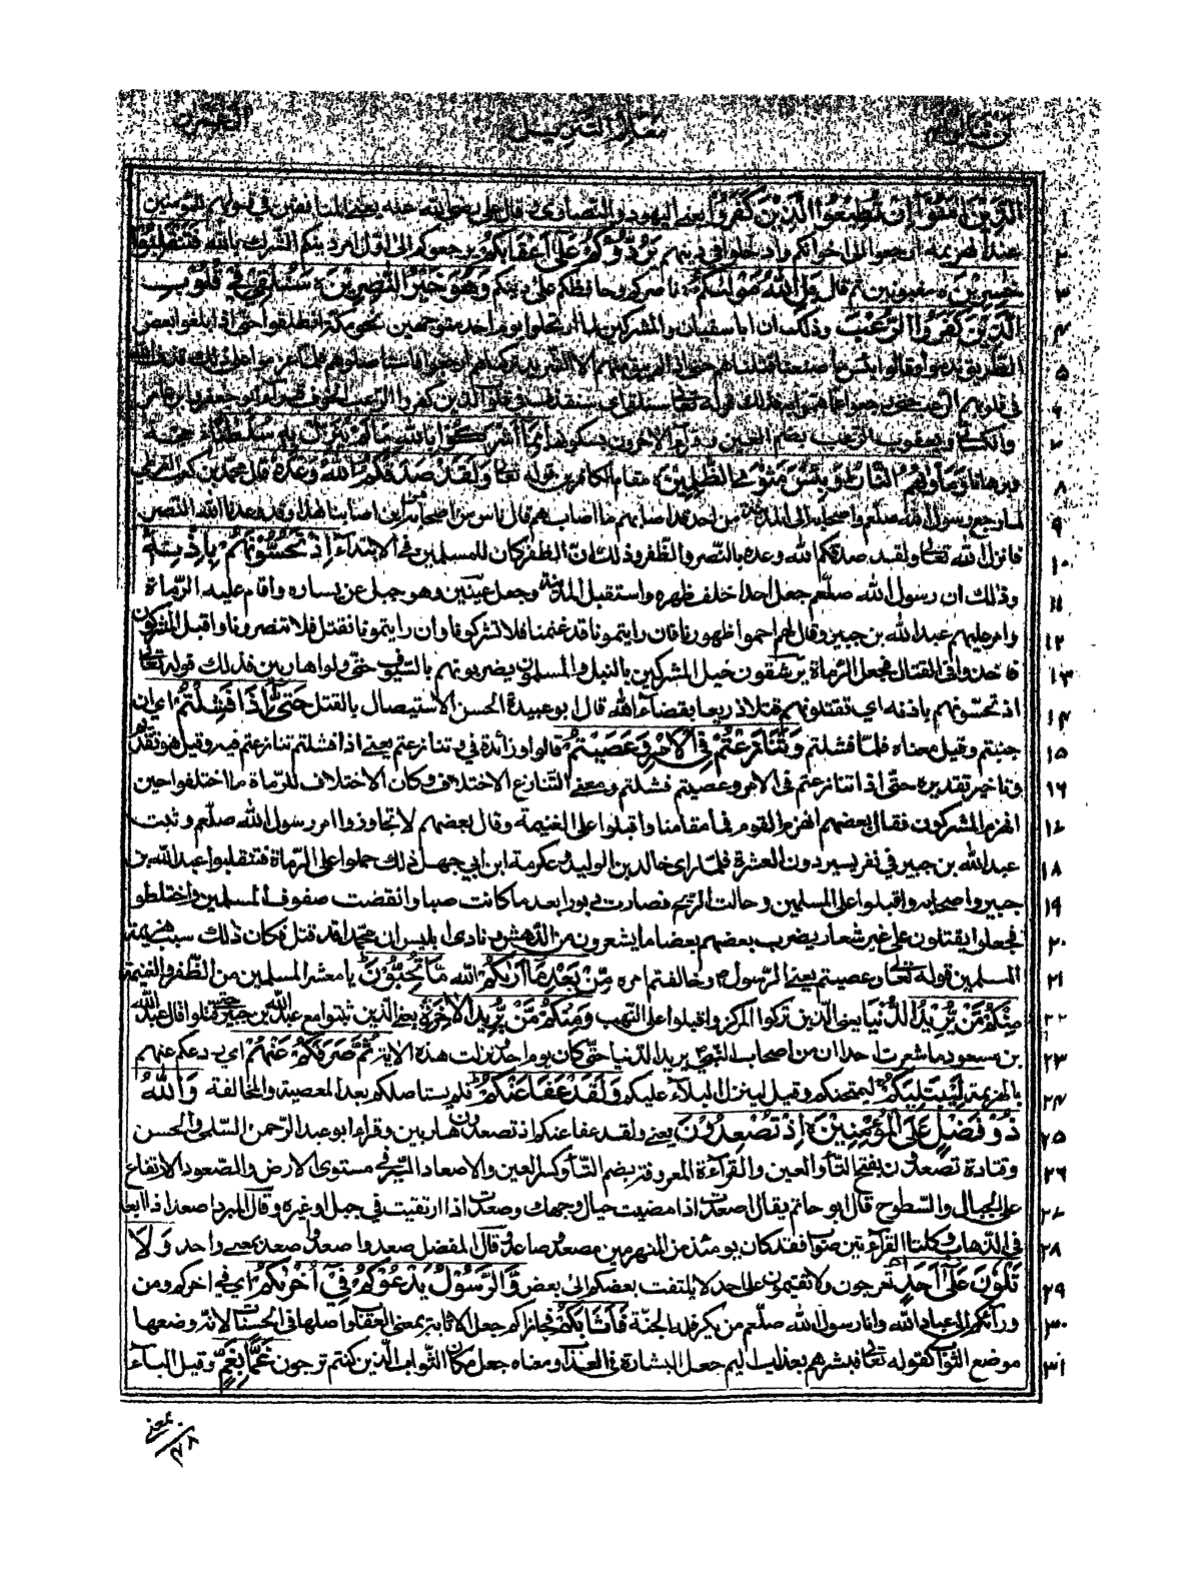 لن تنالوا٤ معالم التنزيل اٰل عمرٰن
١ الَّذِيْنَ اٰمَنُوْٓا اِنْ تُطِيْعُوا الَّذِيْنَ كَفَرُوْا يعنى اليهود والنصارى وقال على رضى الله عنه يعنى المنافقين فى قولهم للمؤمنين
٢ عند الهزيمة ارجعوا الى اخوانكم وادخلوا فى دينهم يَرُدُّوْكُمْ عَلٰٓى اَعْقَابِكُمْ يرجعوكم الى اول امر دينكم الشرك بالله فَتَنْقَلِبُوْا
٣ خٰسِرِيْنَ ه مغبونين ثم قال بَلِ اللّٰهُ مَوْلٰىكُمْ ناصركم وحافظكم على دينكم وَهُوَ خَيْرُ النّٰصِرِيْنَ ه سَنُلْقِيْ فِيْ قُلُوْبِ
٤ الَّذِيْنَ كَفَرُوا الرُّعْبَ وذلك ان ابا سفيان والمشركين لما ارتحلوا يوم احد متوجهين نحو مكة انطلقوا حتى اذا بلغوا بعض
٥ الطريق ندموا وقالوا بئس ما صنعنا قتلناهم حتى اذا لم يبق منهم الا الشريد تركناهم ارجعوا فاستاصلوهم فلما عزموا على ذلك قذف الله
٦ فى قلوبهم الرعب حتى رجعوا عما هموا به فذلك قوله تعالى سنلقى اى سنقذف فى قلوب الذين كفروا الرعب الخوف وقرأ ابو جعفر وابن عامر
٧ والكسائى ويعقوب الرعب بضم العين وقرأ الاخرون بسكونها بِمَٓا اَشْرَكُوْا بِاللّٰهِ مَا لَمْ يُنَزِّلْ بِهٖ سُلْطٰنًا حجة
٨ وبرهانا وَمَاْوٰىهُمُ النَّارُ وَبِئْسَ مَثْوَى الظّٰلِمِيْنَ ه مقام الكافرين قوله تعالى وَلَقَدْ صَدَقَكُمُ اللّٰهُ وَعْدَهٗ قال محمد بن كعب القرظى
٩ لما رجع رسول الله صلعم واصحابه الى المدينة من احد قد اصابهم ما اصابهم قال ناس من اصحابه من اين اصابنا هذا وقد وعدنا الله النصر
١٠ فانزل الله تعالى ولقد صدقكم الله وعده بالنصر والظفر وذلك ان الظفر كان للمسلمين فى الابتداء اِذْ تَحُسُّوْنَهُمْ بِاِذْنِهٖ
١١ وذلك ان رسول الله صلعم جعل احدا خلف ظهره واستقبل المدينة وجعل عينين وهو جبل عن يساره واقام عليه الرماة
١٢ وامر عليهم عبد الله بن جبير وقال لهم احموا ظهورنا فان رايتمونا قد غنمنا فلا تشركونا وان رايتمونا نقتل فلا تنصرونا واقبل المشركون
١٣ فاخذوا فى القتال فجعل الرماة يرشقون خيل المشركين بالنبل والمسلمون يضربونهم بالسيوف حتى ولوا هاربين فذلك قوله تعالى
١٤ اذ تحسونهم باذنه اى تقتلونهم قتلا ذريعا بقضاء الله قال ابو عبيدة الحسن الاستيصال بالقتل حَتّٰٓى اِذَا فَشِلْتُمْ اى ان
١٥ جبنتم وقيل معناه فلما فشلتم وَتَنَازَعْتُمْ فِى الْاَمْرِ وَعَصَيْتُمْ قالوا وزائدة فى وتنازعتم يعنى اذا فشلتم تنازعتم فيه وقيل هو تقديم
١٦ وتاخير تقديره حتى اذا تنازعتم فى الامر وعصيتم فشلتم ومعنى التنازع الاختلاف وكان الاختلاف للرماة ما اختلفوا حين
١٧ انهزم المشركون فقال بعضهم انهزم القوم فما مقامنا واقبلوا على الغنيمة وقال بعضهم لا تجاوزوا امر رسول الله صلعم وثبت
١٨ عبد الله بن جبير فى نفر يسير دون العشرة فلما راى خالد بن الوليد وعكرمة ابن ابى جهل ذلك حملوا على الرماة فتنقلبوا عبد الله بن
١٩ جبير واصحابه واقبلوا على المسلمين وحالت الريح فصارت دبورا بعد ما كانت صبا وانقضت صفوف المسلمين واختلطوا
٢٠ فجعلوا يقتلون على غير شعار يضرب بعضهم بعضا ما يشعرون من الدهش ونادى ابليس ان محمدا قد قتل فكان ذلك سبب هزيمة
٢١ المسلمين قوله تعالى وعصيتم يعنى الرسول وخالفتم امره مِّنْۢ بَعْدِ مَآ اَرٰىكُمْ الله مَّا تُحِبُّوْنَ يا معشر المسلمين من الظفر والغنيمة
٢٢ مِنْكُمْ مَّنْ يُّرِيْدُ الدُّنْيَا يعنى الذين تركوا المركز واقبلوا على النهب وَمِنْكُمْ مَّنْ يُّرِيْدُ الْاٰخِرَةَ يعنى الذين ثبتوا مع عبد الله بن جبير حتى قتلوا قال عبد الله
٢٣ بن مسعود ما شعرت احدا ان من اصحاب النبى يريد الدنيا حتى كان يوم احد ونزلت هذه الاية ثُمَّ صَرَفَكُمْ عَنْهُمْ اى ردكم عنهم
٢٤ بالهزيمة لِيَبْتَلِيَكُمْ ليمتحنكم وقيل لينزل البلاء عليكم وَلَقَدْ عَفَا عَنْكُمْ فلم يستاصلكم بعد المعصية والمخالفة وَاللّٰهُ
٢٥ ذُوْ فَضْلٍ عَلَى الْمُؤْمِنِيْنَ ه اِذْ تُصْعِدُوْنَ يعنى ولقد عفا عنكم اذ تصعدون هاربين وقرأ ابو عبد الرحمن السلمى والحسن
٢٦ وقتادة تصعدون بفتح التاء والعين والقرأة المعروفة بضم التاء وكسر العين والاصعاد السير فى مستوى الارض والصعود الارتفاع
٢٧ على الجبال والسطوح قال ابو حاتم يقال اصعدت اذا مضيت حيال وجهك وصعدت اذا ارتقيت فى جبل او غيره وقال المبرد اصعد اذا ابعد
٢٨ فى الذهاب وكلتا القرأءتين صواب فقد كان يومئذ من المنهزمين مصعد وصاعد قال المفضل صعد واصعد وصعد بمعنى واحد وَلَا
٢٩ تَلْوٗنَ عَلٰٓى اَحَدٍ تعرجون ولا تقيمون على احد لا يلتفت بعضكم الى بعض وَّالرَّسُوْلُ يَدْعُوْكُمْ فِيْٓ اُخْرٰىكُمْ اى فى اخركم ومن
٣٠ ورائكم الى عباد الله وانا رسول الله صلعم من يكر فله الجنة فَاَثَابَكُمْ فجازاكم جعل الاثابة بمعنى العقاب واصلها فى الحسنات لانه وضعها
٣١ موضع الثواب كقوله تعالى فبشرهم بعذاب اليم جعل البشارة فى العذاب ومعناه جعل مكان الثواب الذين كنتم ترجون غَمًّا بِغَمٍّ وقيل الباء
بمعنى
٤٨